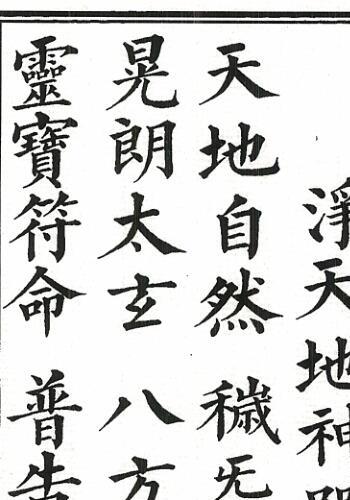 淨天地神
天地自然 穢炁
晃朗太玄 八方
靈寶符命 普告